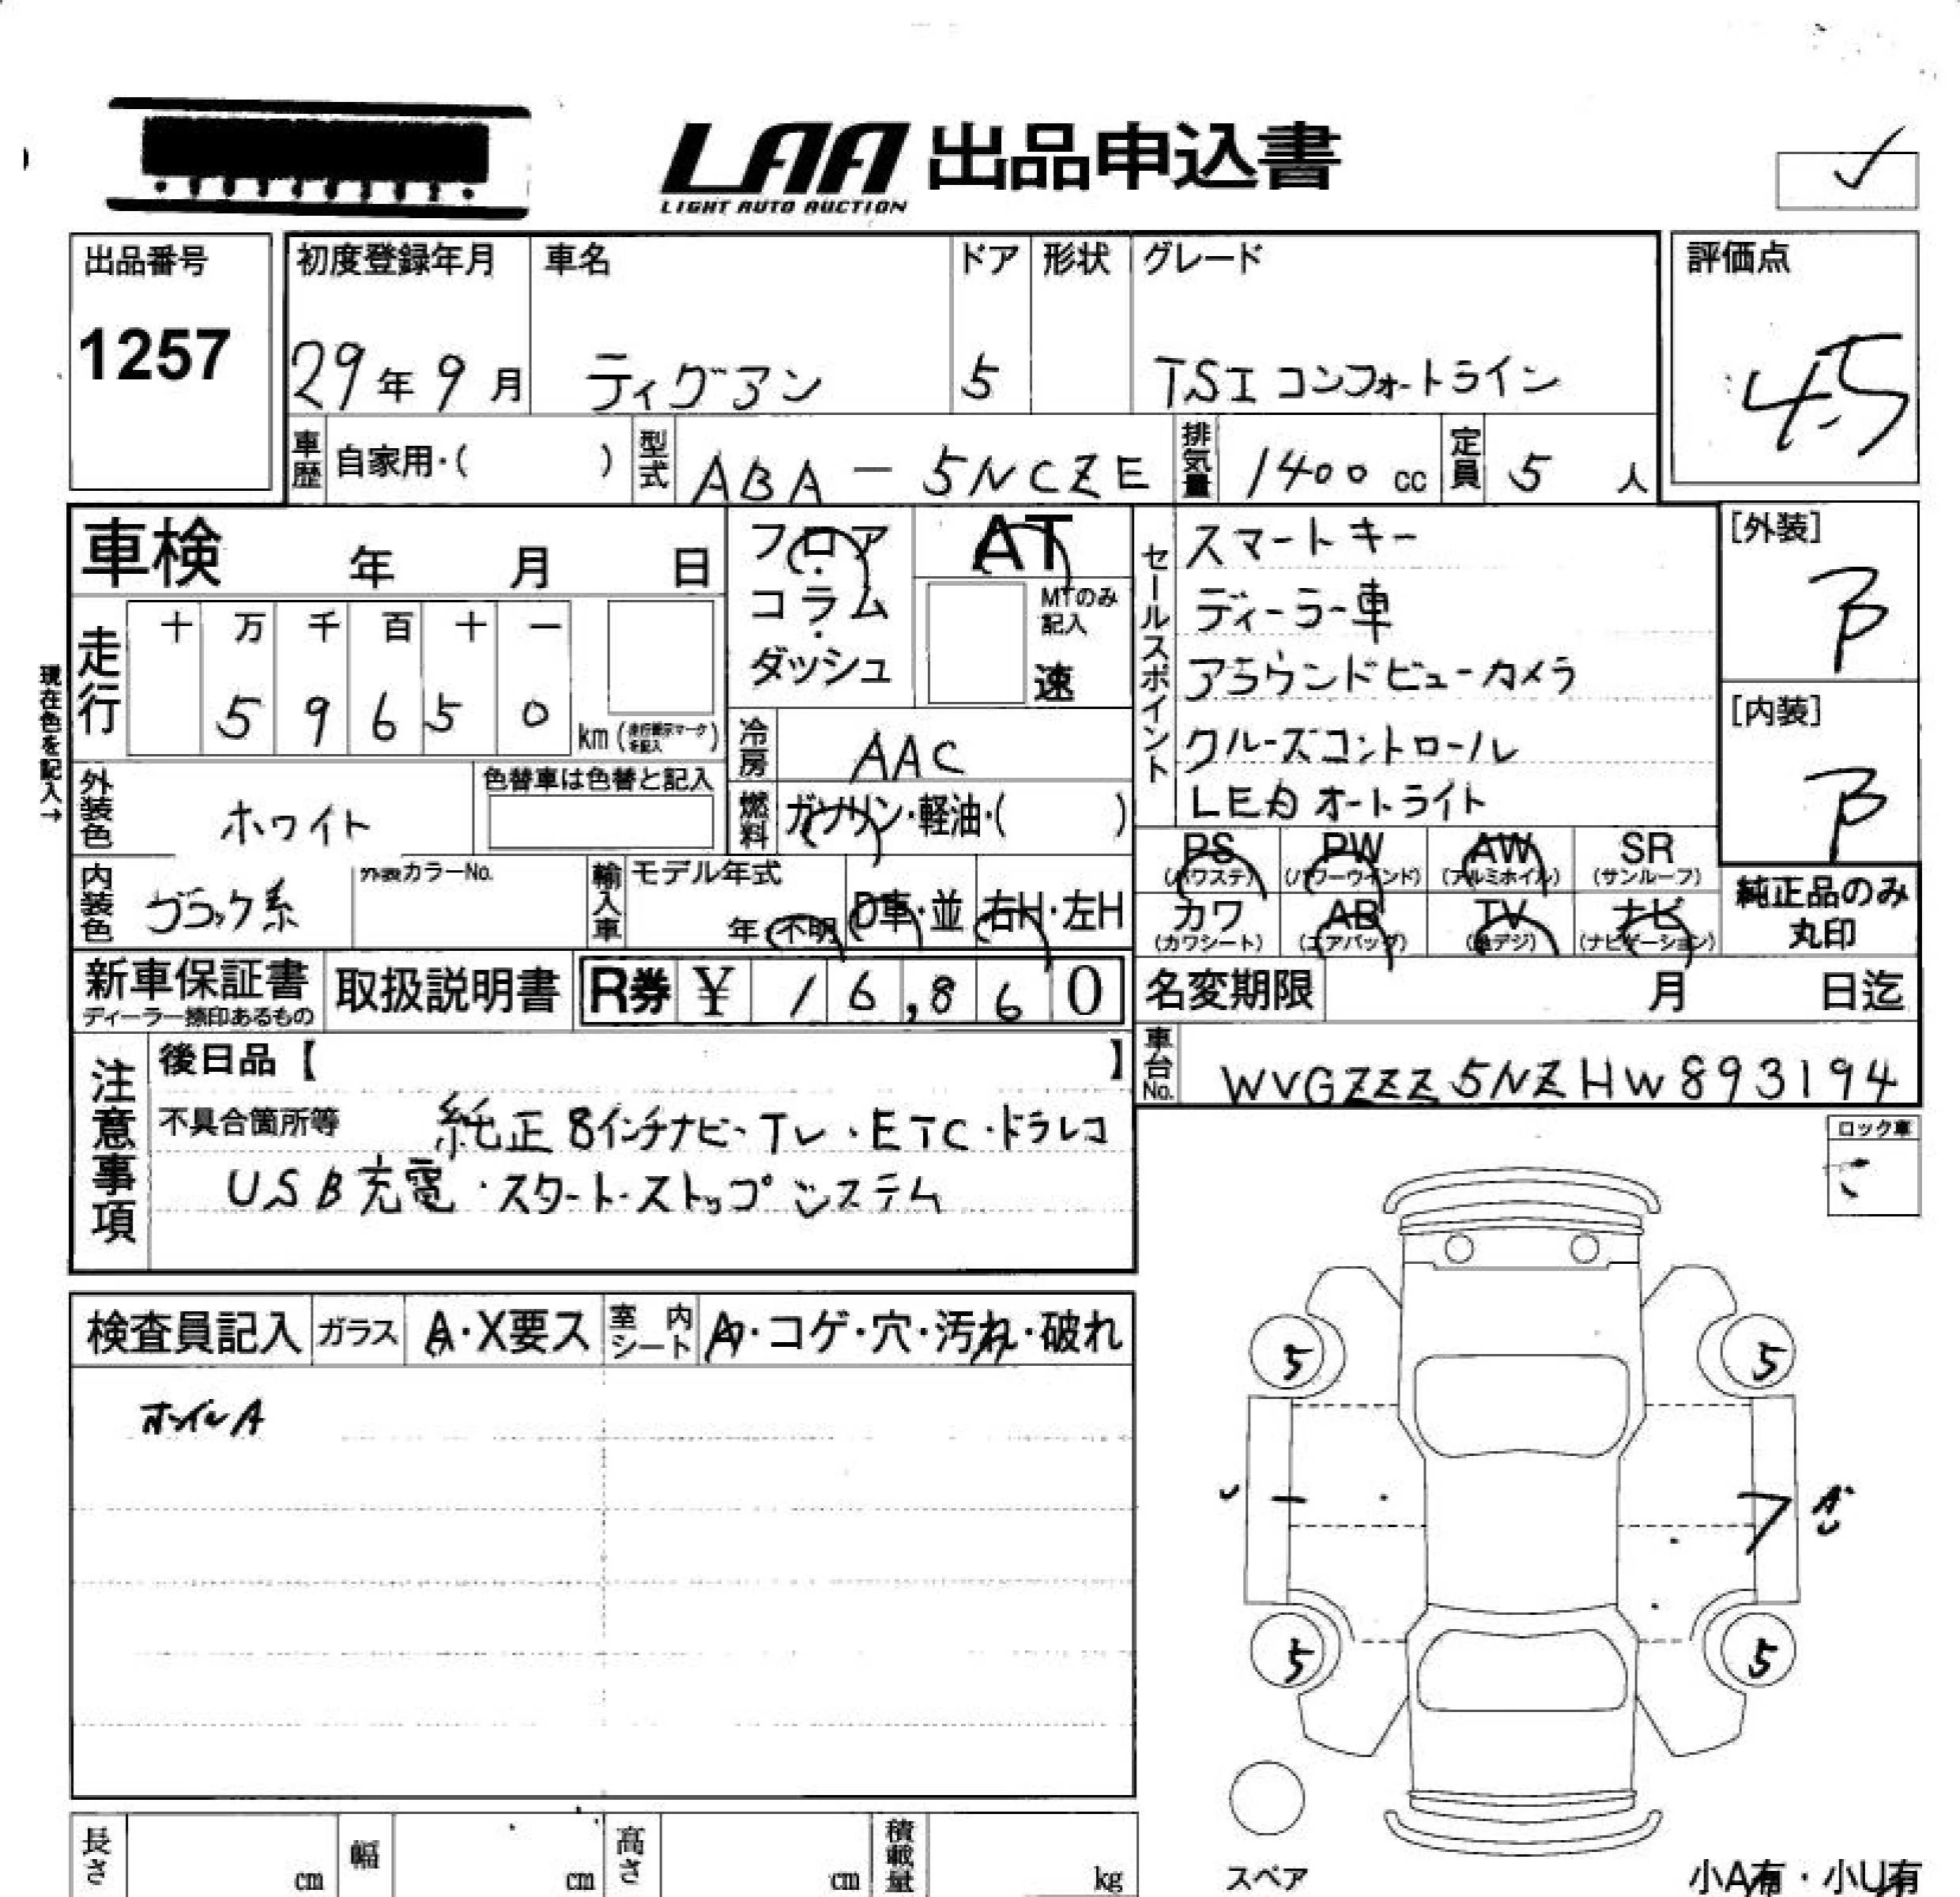 LAA 出品申込書
LIGHT AUTO AUCTION
出品番号
1257
初度登録年月 車名 ドア 形状 グレード
29年9月 ティグアン 5 TSI コンフォートライン
評価点
4.5
車歴 自家用・( ) 型式 ABA-5NCZE 排気量 1400cc 定員 5人
車検 年 月 日
フロア・コラム・ダッシュ
AT
MTのみ記入
速
セールスポイント
スマートキー
ディーラー車
アラウンドビューカメラ
クルーズコントロール
LEDオートライト
[外装]
B
[内装]
B
現在色を記入→
走行 十 万 千 百 十 一
5 9 6 5 0 km
冷房 AAC
外装色 ホワイト 色替車は色替と記入
燃料 ガソリン・軽油・( )
内装色 ブラック系 外装カラーNo.
輸入車 モデル年式 年・不明 D車・並 右H・左H
PS (パワステ) PW (パワーウインド) AW (アルミホイル) SR (サンルーフ)
カワ (カワシート) AB (エアバッグ) TV (地デジ) ナビ (ナビゲーション)
純正品のみ丸印
新車保証書
ディーラー捺印あるもの
取扱説明書 R券 ¥ 16,860
名変期限 月 日迄
車台No. WVGZZZ5NZHW893194
注意事項
後日品【 】
不具合箇所等 純正8インチナビ・TV・ETC・ドラレコ
USB充電・スタート・ストップシステム
ロック車
検査員記入 ガラス A・X要ス 室内シート A・コゲ・穴・汚れ・破れ
ホイルA
5 5
5 5
スペア
小A有・小U有
長さ cm 幅 cm 高さ cm 積載量 kg